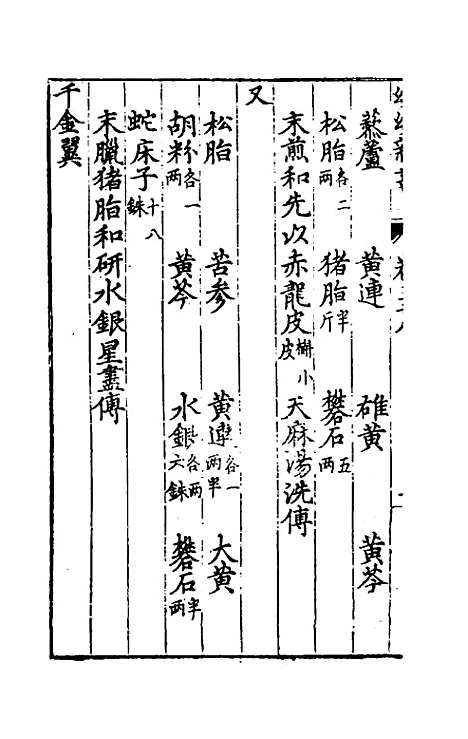 藜蘆　黃連　雄黃　黃芩
松脂各二兩　猪脂半斤　礬石五兩
末煎和先以赤龍皮槲小皮　天麻湯洗傅
又
松脂　苦參　黃連各一兩半　大黃
胡粉各一兩　黃芩　水銀各兩六銖　礬石半兩
蛇床子十八銖
末臘猪脂和研水銀星盡傅
千金翼